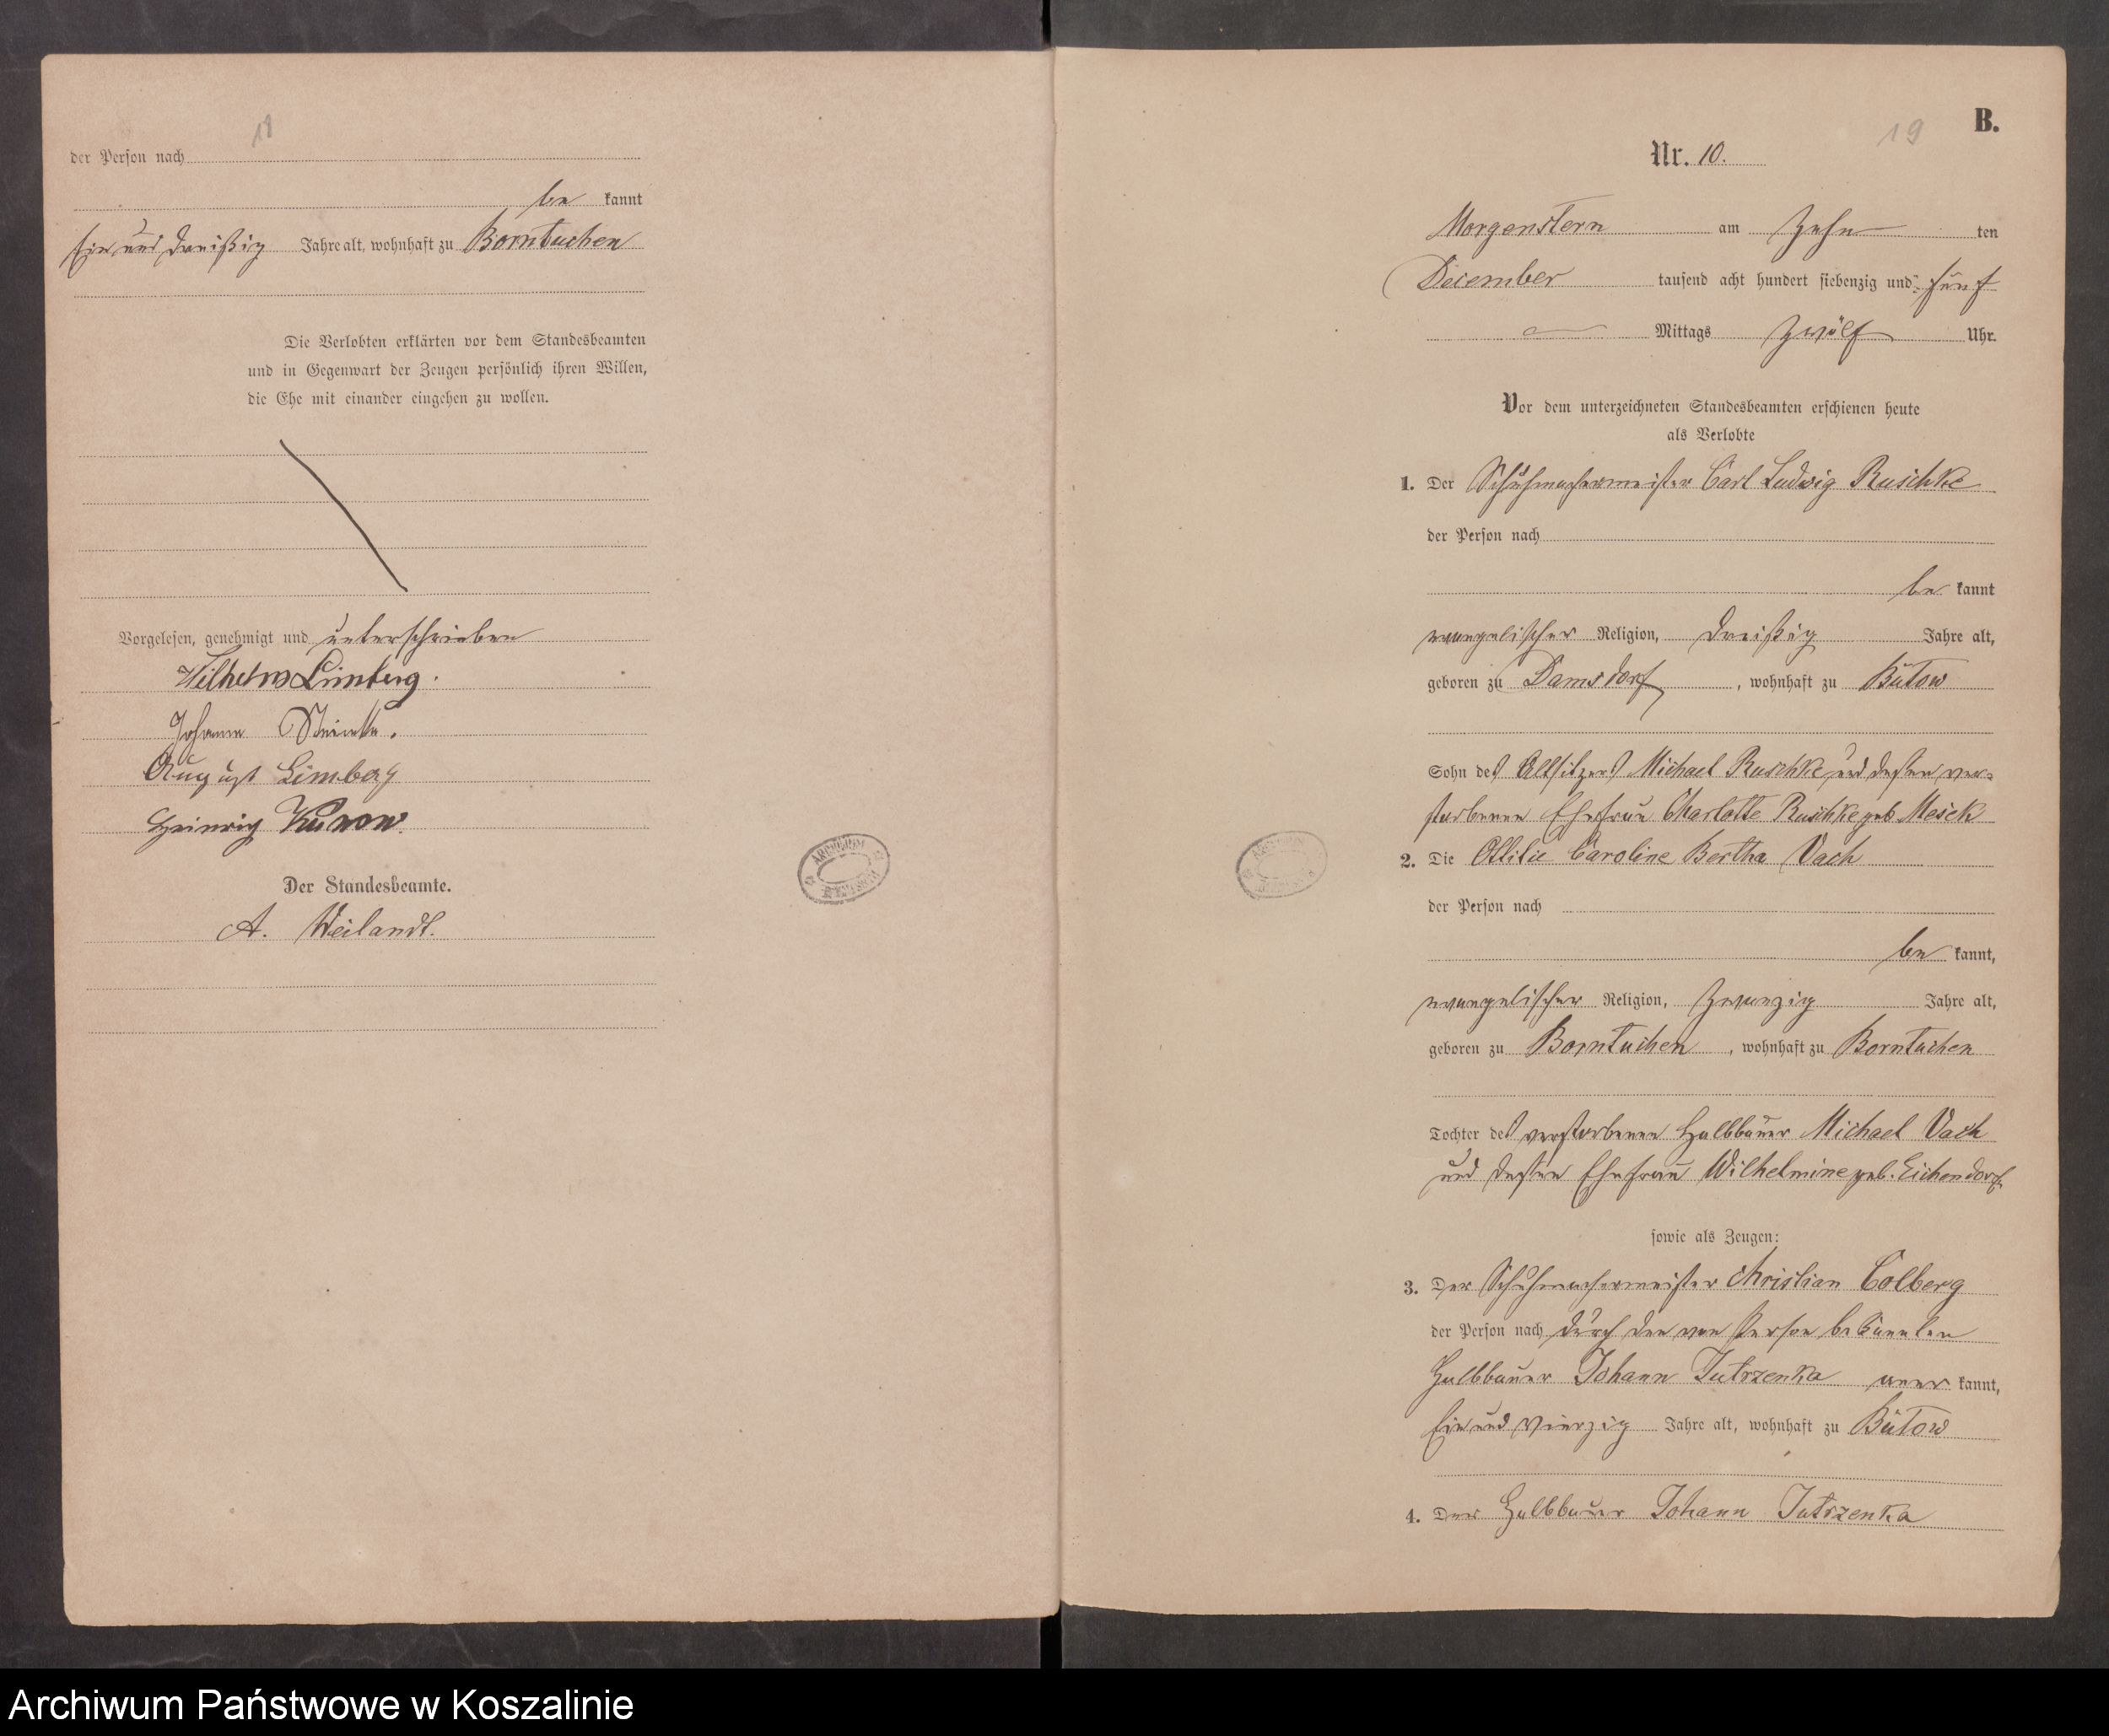 18
der Person nach
be kannt
Ein und dreißig Jahre alt, wohnhaft zu Borntuchen
Die Verlobten erklärten vor dem Standesbeamten
und in Gegenwart der Zeugen persönlich ihren Willen,
die Ehe mit einander eingehen zu wollen.
Vorgelesen, genehmigt und unterschrieben
Wilhelm Limberg.
Johann
August Limberg
Heinrich Kunow.
Der Standesbeamte.
A. Weilandt.
ARCHIWUM
B.
19
Nr. 10.
Morgenstern am Zehn ten
December tausend acht hundert siebenzig und fünf
Mittags Zwölf Uhr.
Vor dem unterzeichneten Standesbeamten erschienen heute
als Verlobte
1. Der Schuhmachermeister Carl Ludwig Ruschke
der Person nach
be kannt
evangelischer Religion, dreißig Jahre alt,
geboren zu Damsdorf, wohnhaft zu Bütow
Sohn des Altsitzers Michael Ruschke und dessen ver-
storbenen Ehefrau Charlotte Ruschke geb Mesck
2. Die Ottilie Caroline Bertha Vach
der Person nach
be kannt,
evangelischer Religion, Zwanzig Jahre alt,
geboren zu Borntuchen, wohnhaft zu Borntuchen
Tochter des verstorbenen Halbbauer Michael Vach
und dessen Ehefrau Wilhelmine geb. Eichendorf.
sowie als Zeugen:
3. Der Schuhmachermeister Christian Colberg
der Person nach durch den von Person bekannten
Halbbauer Johann Jutrzenka aner kannt,
Ein und vierzig Jahre alt, wohnhaft zu Bütow
4. Der Halbbauer Johann Jutrzenka
Archiwum Państwowe w Koszalinie